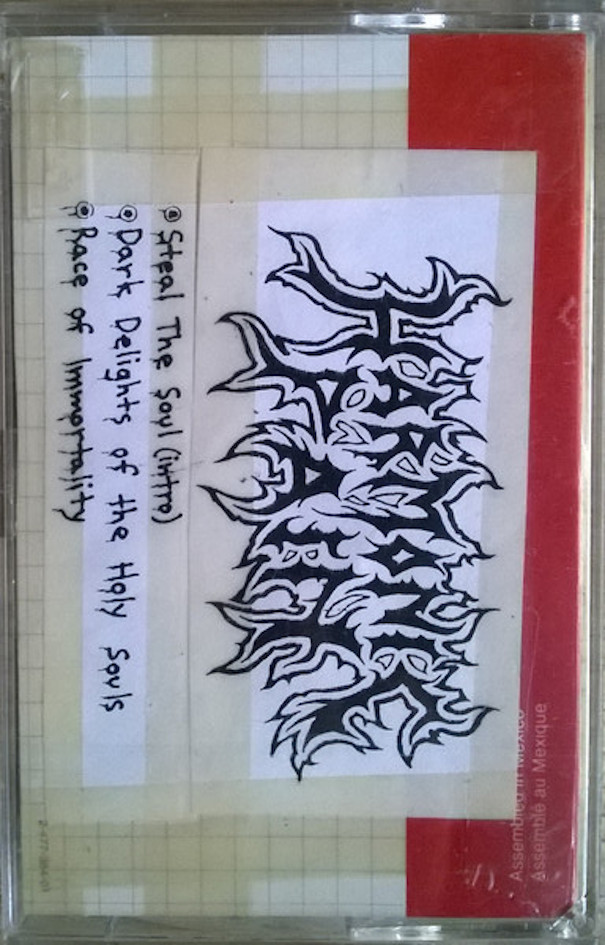 Steal The Soul (intro)
Dark Delights of the Holy Souls
Race of Immortality
Assembled in Mexico
Assemblé au Mexique